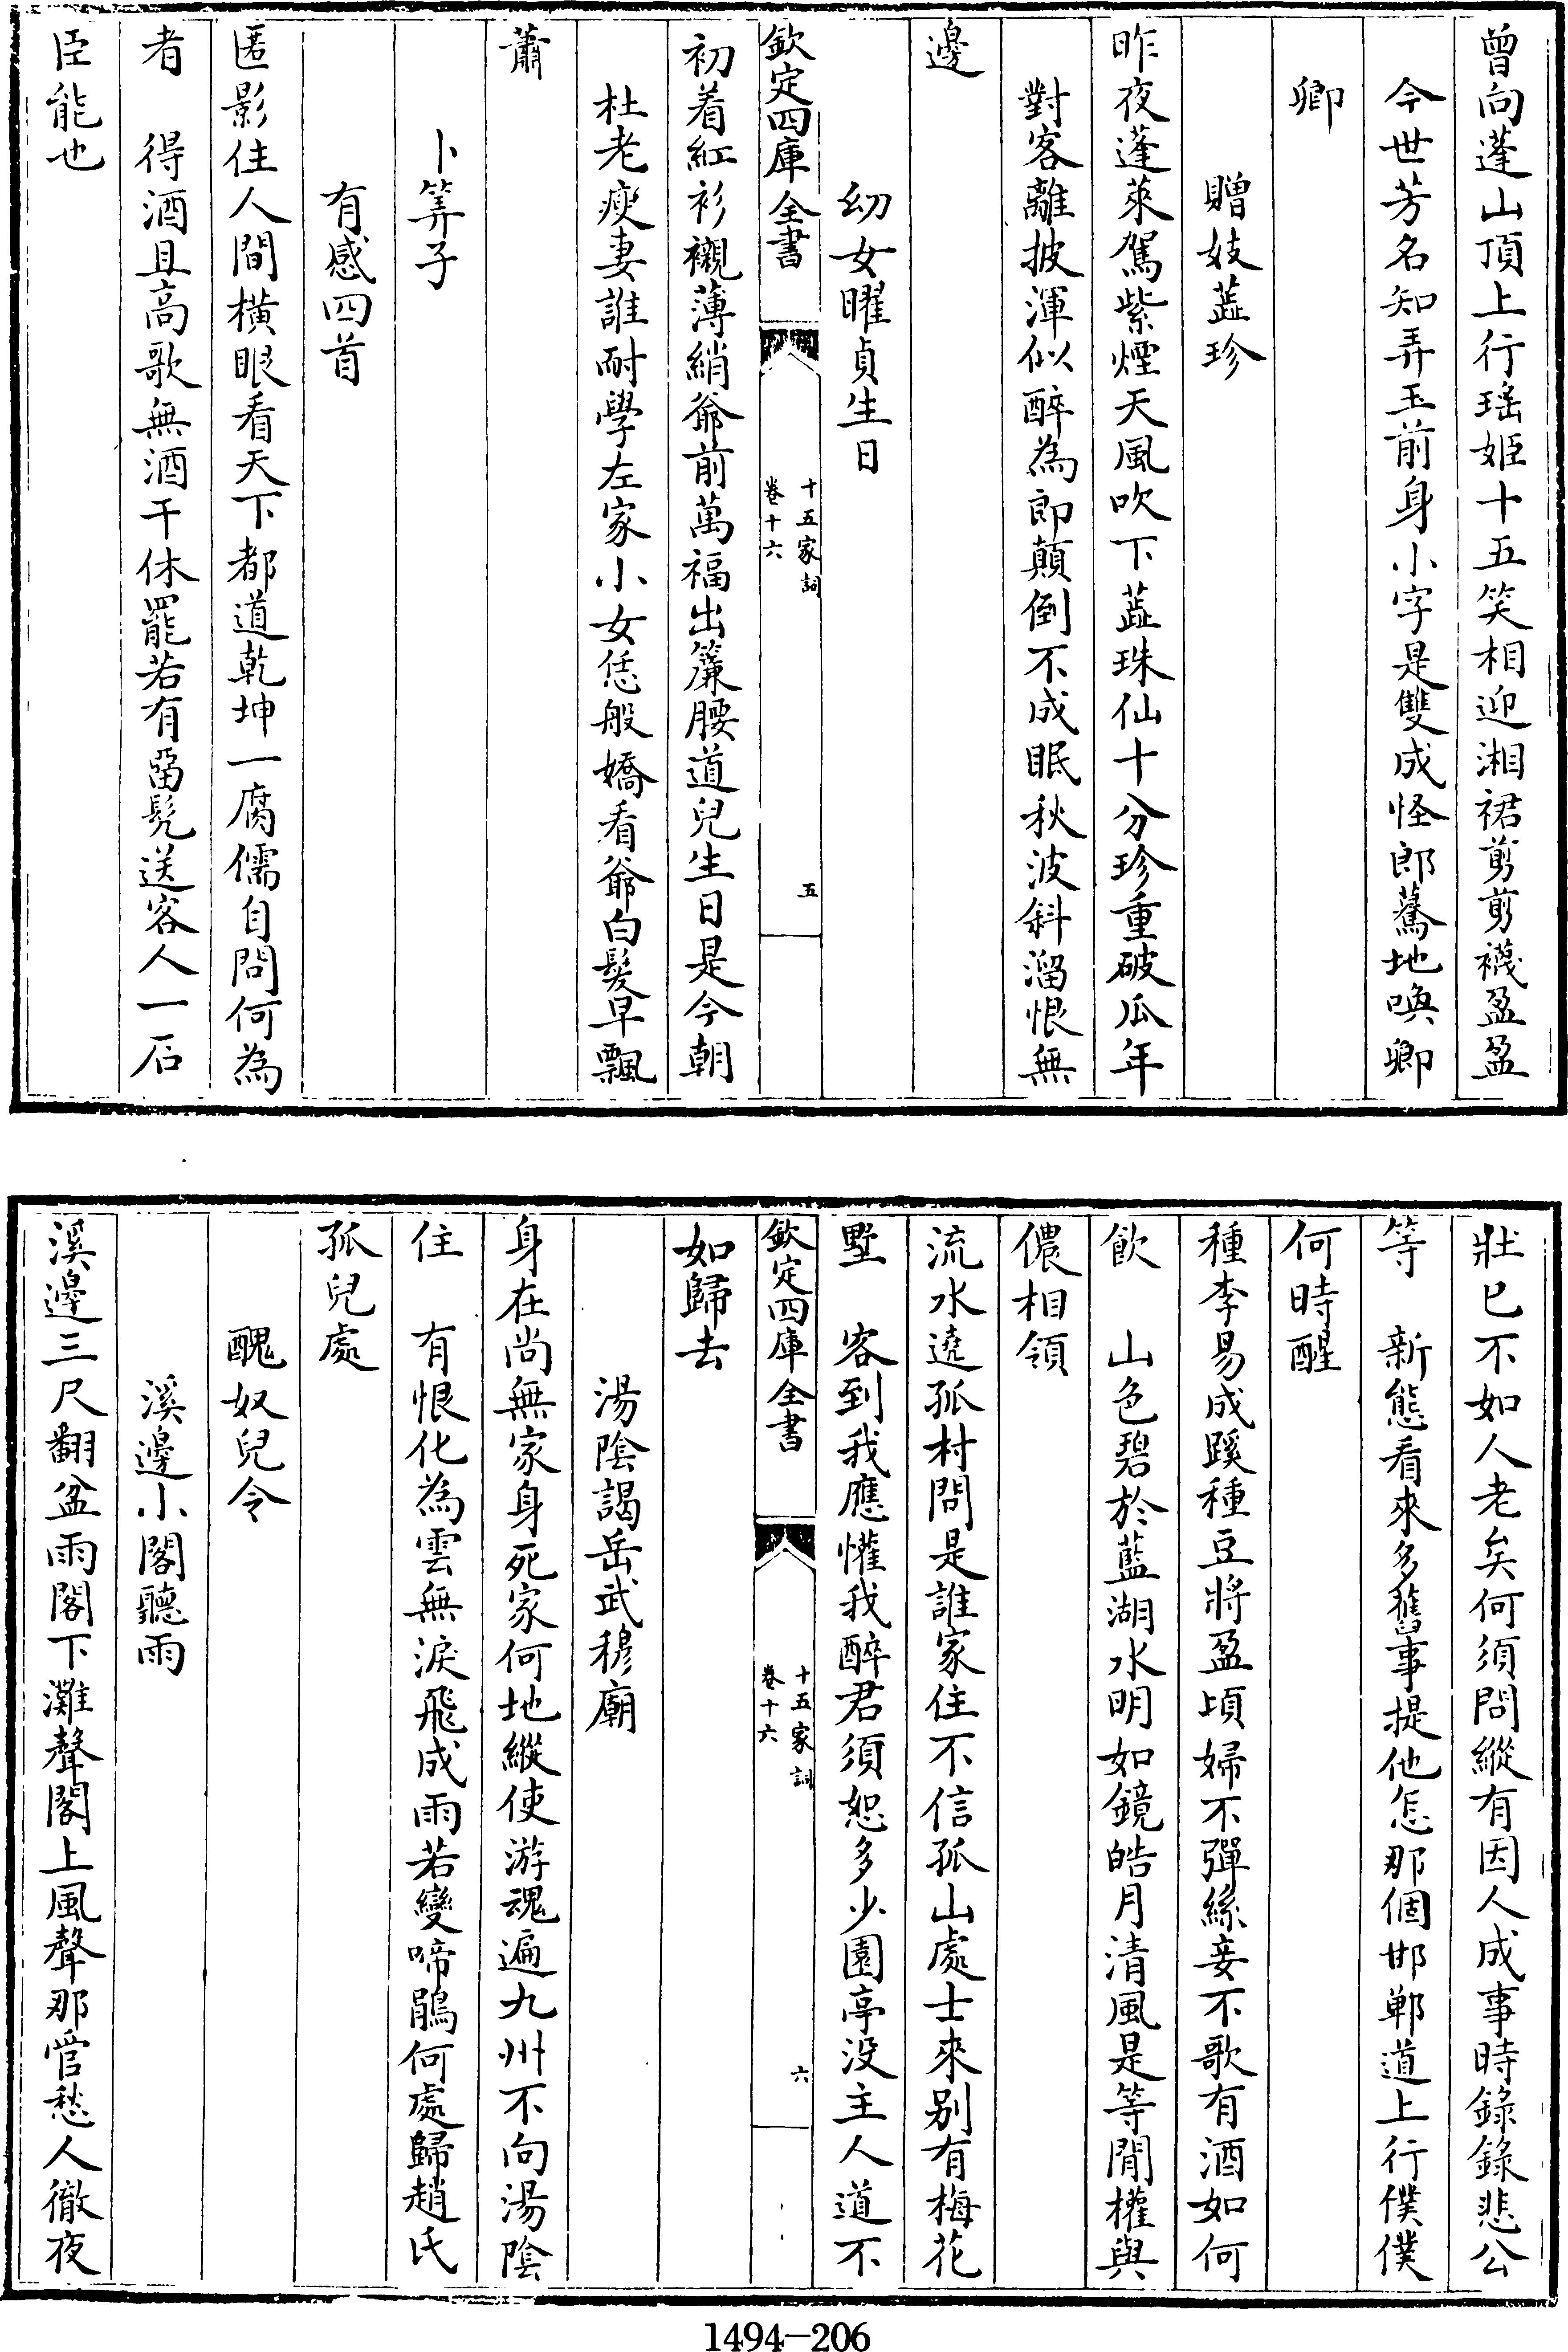 曾向蓬山頂上行瑤姬十五笑相迎湘裙剪剪襪盈盈
今世芳名知弄玉前身小字是雙成怪郎驀地喚卿
卿
贈妓蕋珍
昨夜蓬萊駕紫煙天風吹下蕋珠仙十分珍重破瓜年
對客離披渾似醉為郎顛倒不成眠秋波斜溜恨無
邊
幼女曜貞生日
欽定四庫全書
十五家詞
卷十六
五
初着紅衫襯薄綃爺前萬福出簾腰道兒生日是今朝
杜老瘦妻誰耐學左家小女恁般嬌看爺白髮早飄
蕭
卜筭子
有感四首
匿影住人間橫眼看天下都道乾坤一腐儒自問何為
者　得酒且高歌無酒干休罷若有留髠送客人一石
臣能也
壯已不如人老矣何須問縱有因人成事時錄錄悲公
等　新態看來多舊事提他怎那個邯鄲道上行僕僕
何時醒
種李易成蹊種豆將盈頃婦不彈絲妾不歌有酒如何
飲　山色碧於藍湖水明如鏡皓月清風是等閒權與
儂相領
流水遶孤村問是誰家住不信孤山處士來别有梅花
墅　客到我應懽我醉君須恕多少園亭没主人道不
欽定四庫全書
十五家詞
卷十六
六
如歸去
湯陰謁岳武穆廟
身在尚無家身死家何地縱使游魂遍九州不向湯陰
住　有恨化為雲無淚飛成雨若變啼鵑何處歸趙氏
孤兒處
醜奴兒令
溪邊小閣聽雨
溪邊三尺翻盆雨閣下灘聲閣上風聲那管愁人徹夜
1494—206